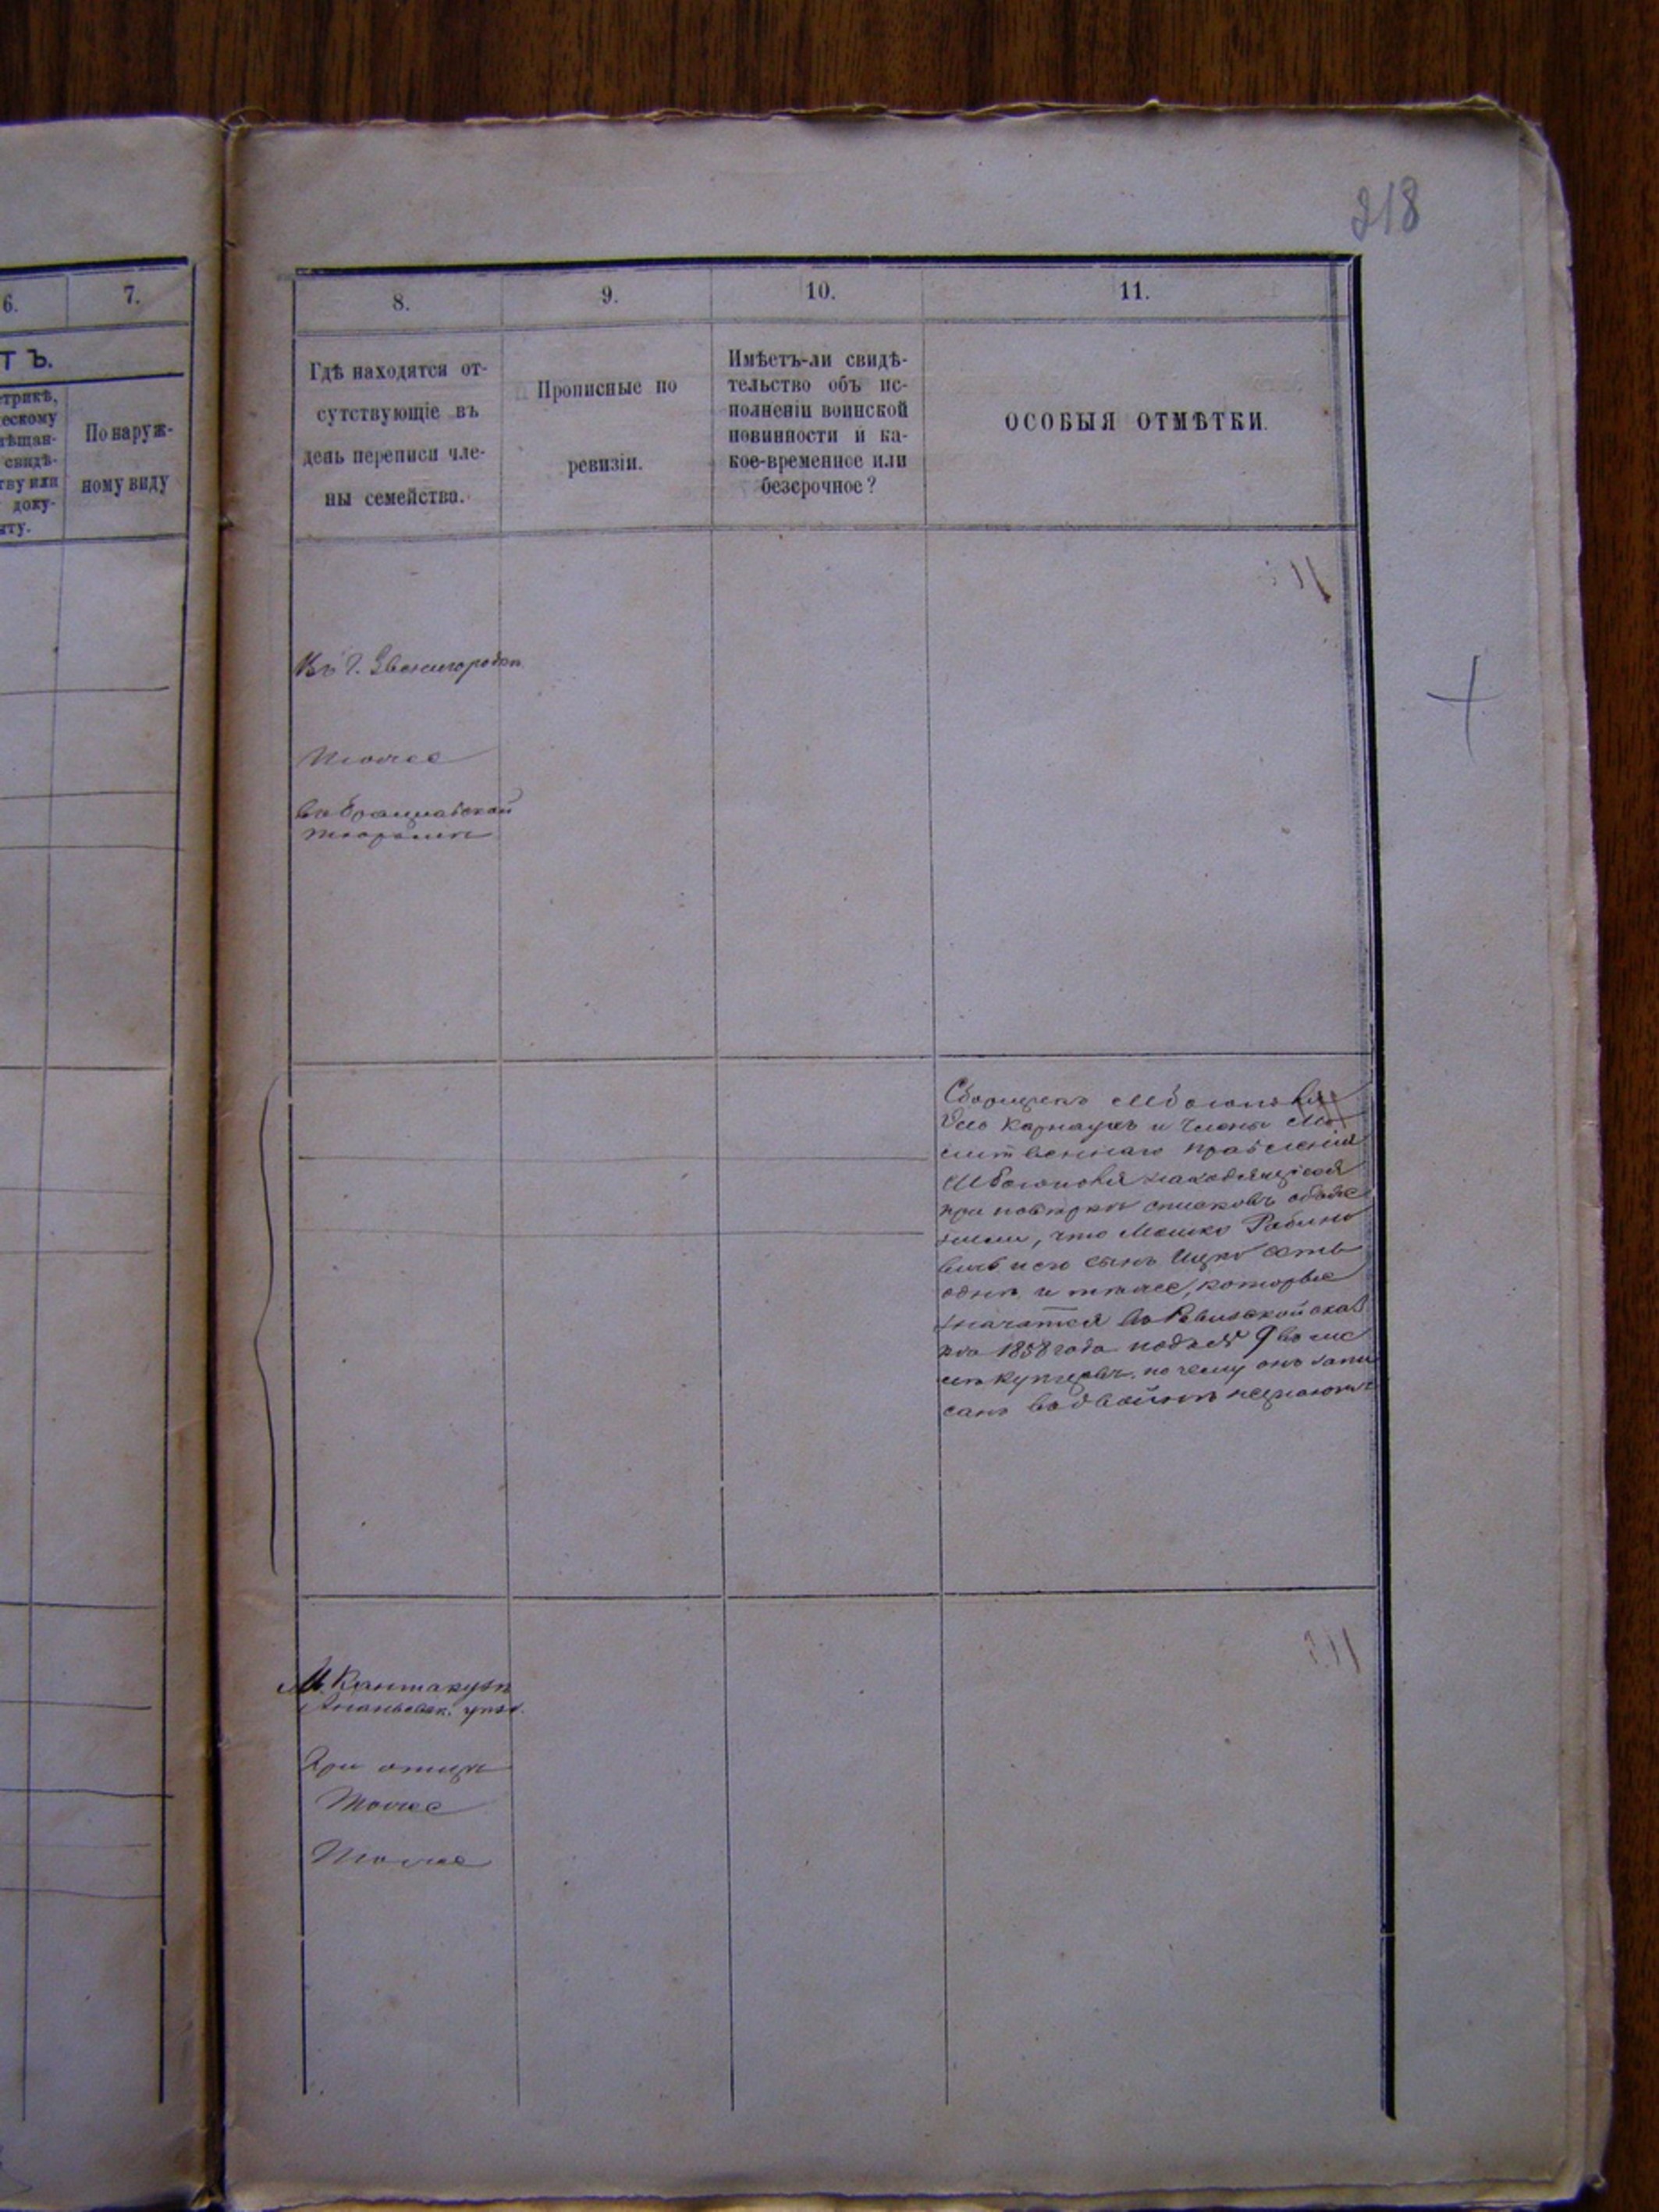 218
6.
7.
ТЪ.
трикѣ,
ескому
ѣщан-
свидѣ-
тву или
доку-
нту.
По наруж-
ному виду
8.
9.
10.
11.
Гдѣ находятся от-
сутствующіе въ
день переписи чле-
ны семейства.
Прописные по
ревизіи.
Имѣетъ-ли свидѣ-
тельство объ ис-
полненіи воинской
повинности и ка-
кое-временное или
безсрочное?
ОСОБЫЯ ОТМѢТКИ.
Въ г. Звенигородкѣ
Тоже
въ Брацлавской
тюрьмѣ
Сборщикъ
Карнаухъ и Члены
правленія
находящіеся
при повѣркѣ списковъ
что Мошко Рабино
вичъ и его сынъ Ицко есть
однѣ и тѣже, которые
значатся въ Ревизской сказ
кѣ 1858 года подъ № 9 въ чис
лѣ купцовъ, почему онъ запи
санъ вдвойнѣ незнаютъ
М. Кантакузѣ
Ананьевск. уѣзд.
При отцѣ
Тоже
Тоже